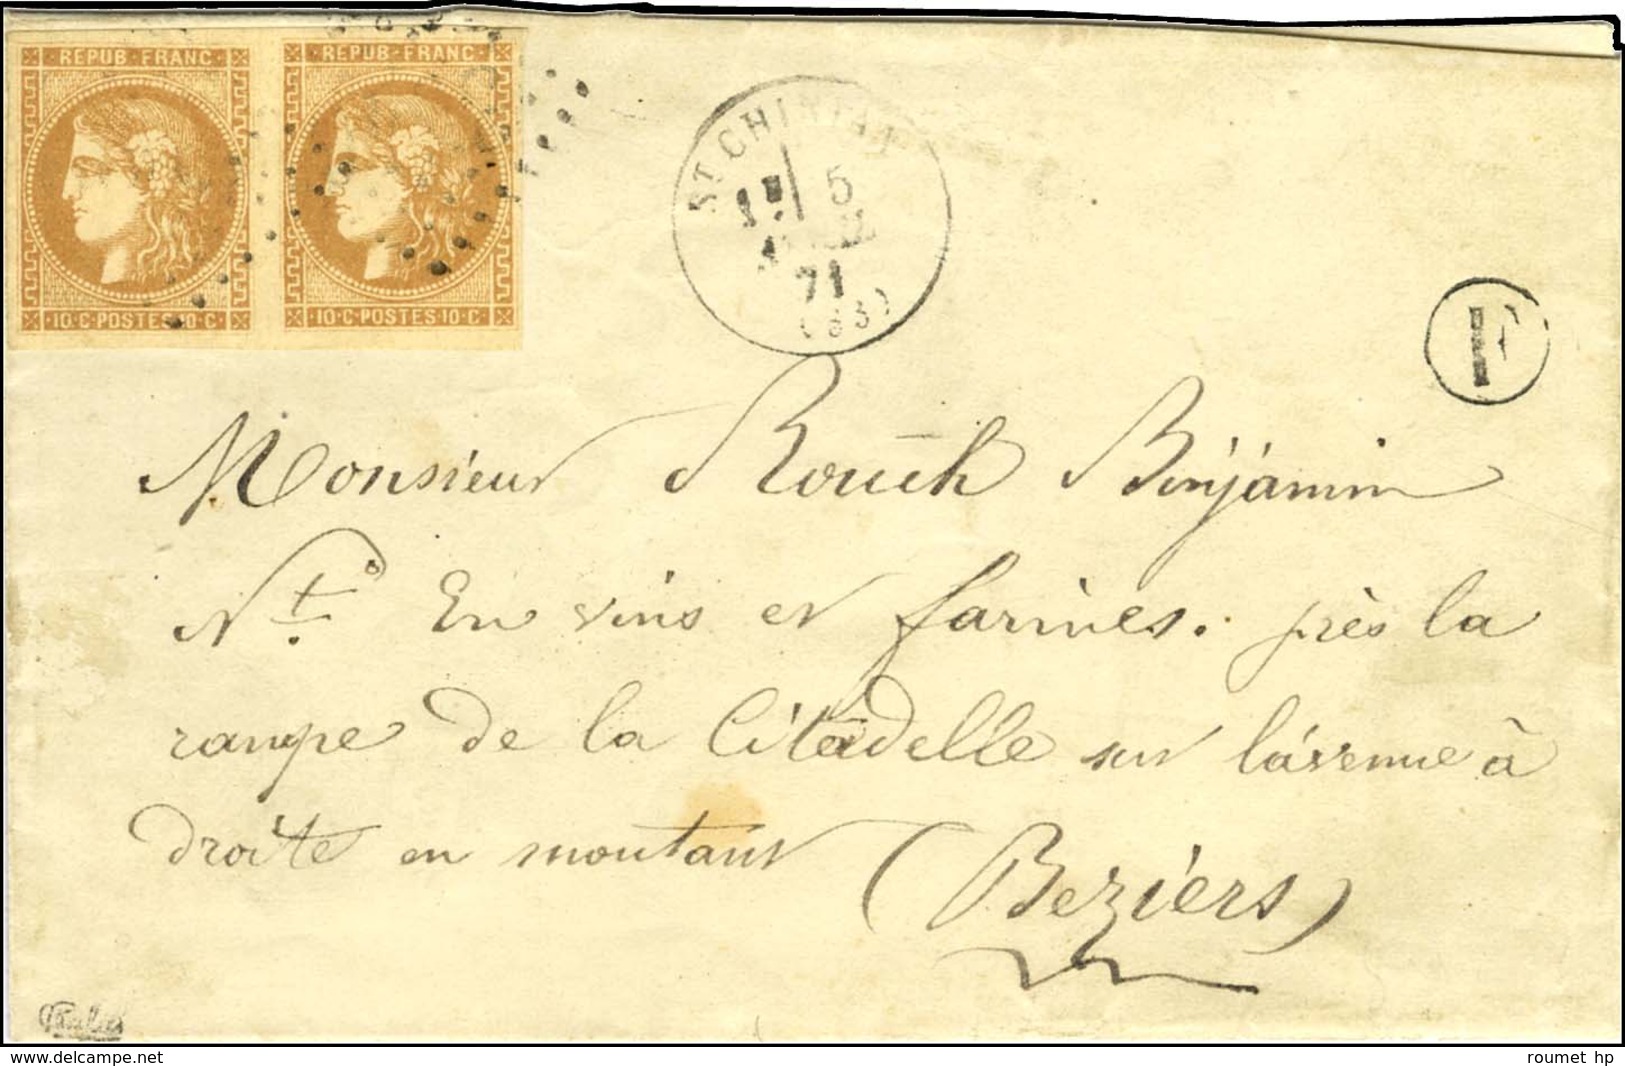 REPUB·FRANC REPUB·FRANC
·10·C·POSTES·10·C· ·10·C·POSTES·10·C·
ST CHINIAN
5
71
F
Monsieur Rouch Binjámin
Nt. En vins et farines. près la
rampe de la Citadelle sur l'avenue à
droite en montant (Beziers)
www.delcampe.net
roumet hp